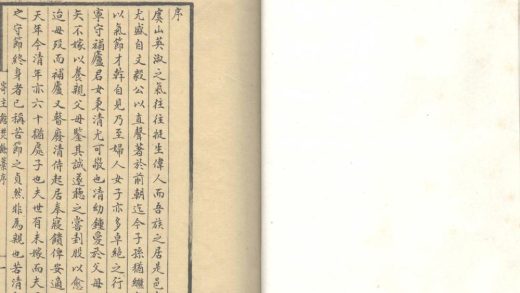 序
虞山英淑之氣往往挺生偉人而吾族之居是邑
尤盛自文毅公以直聲著於前朝迄今子孫猶繼
以氣節才幹自見乃至婦人女子亦多卓絕之行
甯守補廬君女秉清尤可敬也清幼鍾愛於父母
矢不嫁以養親父母鑒其誠遂聽之嘗刲股以愈
迨母歿而補廬又瞽廢清侍起居奉寢饋俾安適
天年今清年亦六十猶處子也夫世有未嫁而夫
之守節終身者已稱苦節之貞然非為親也若清
寄生館焚餘藁序
一